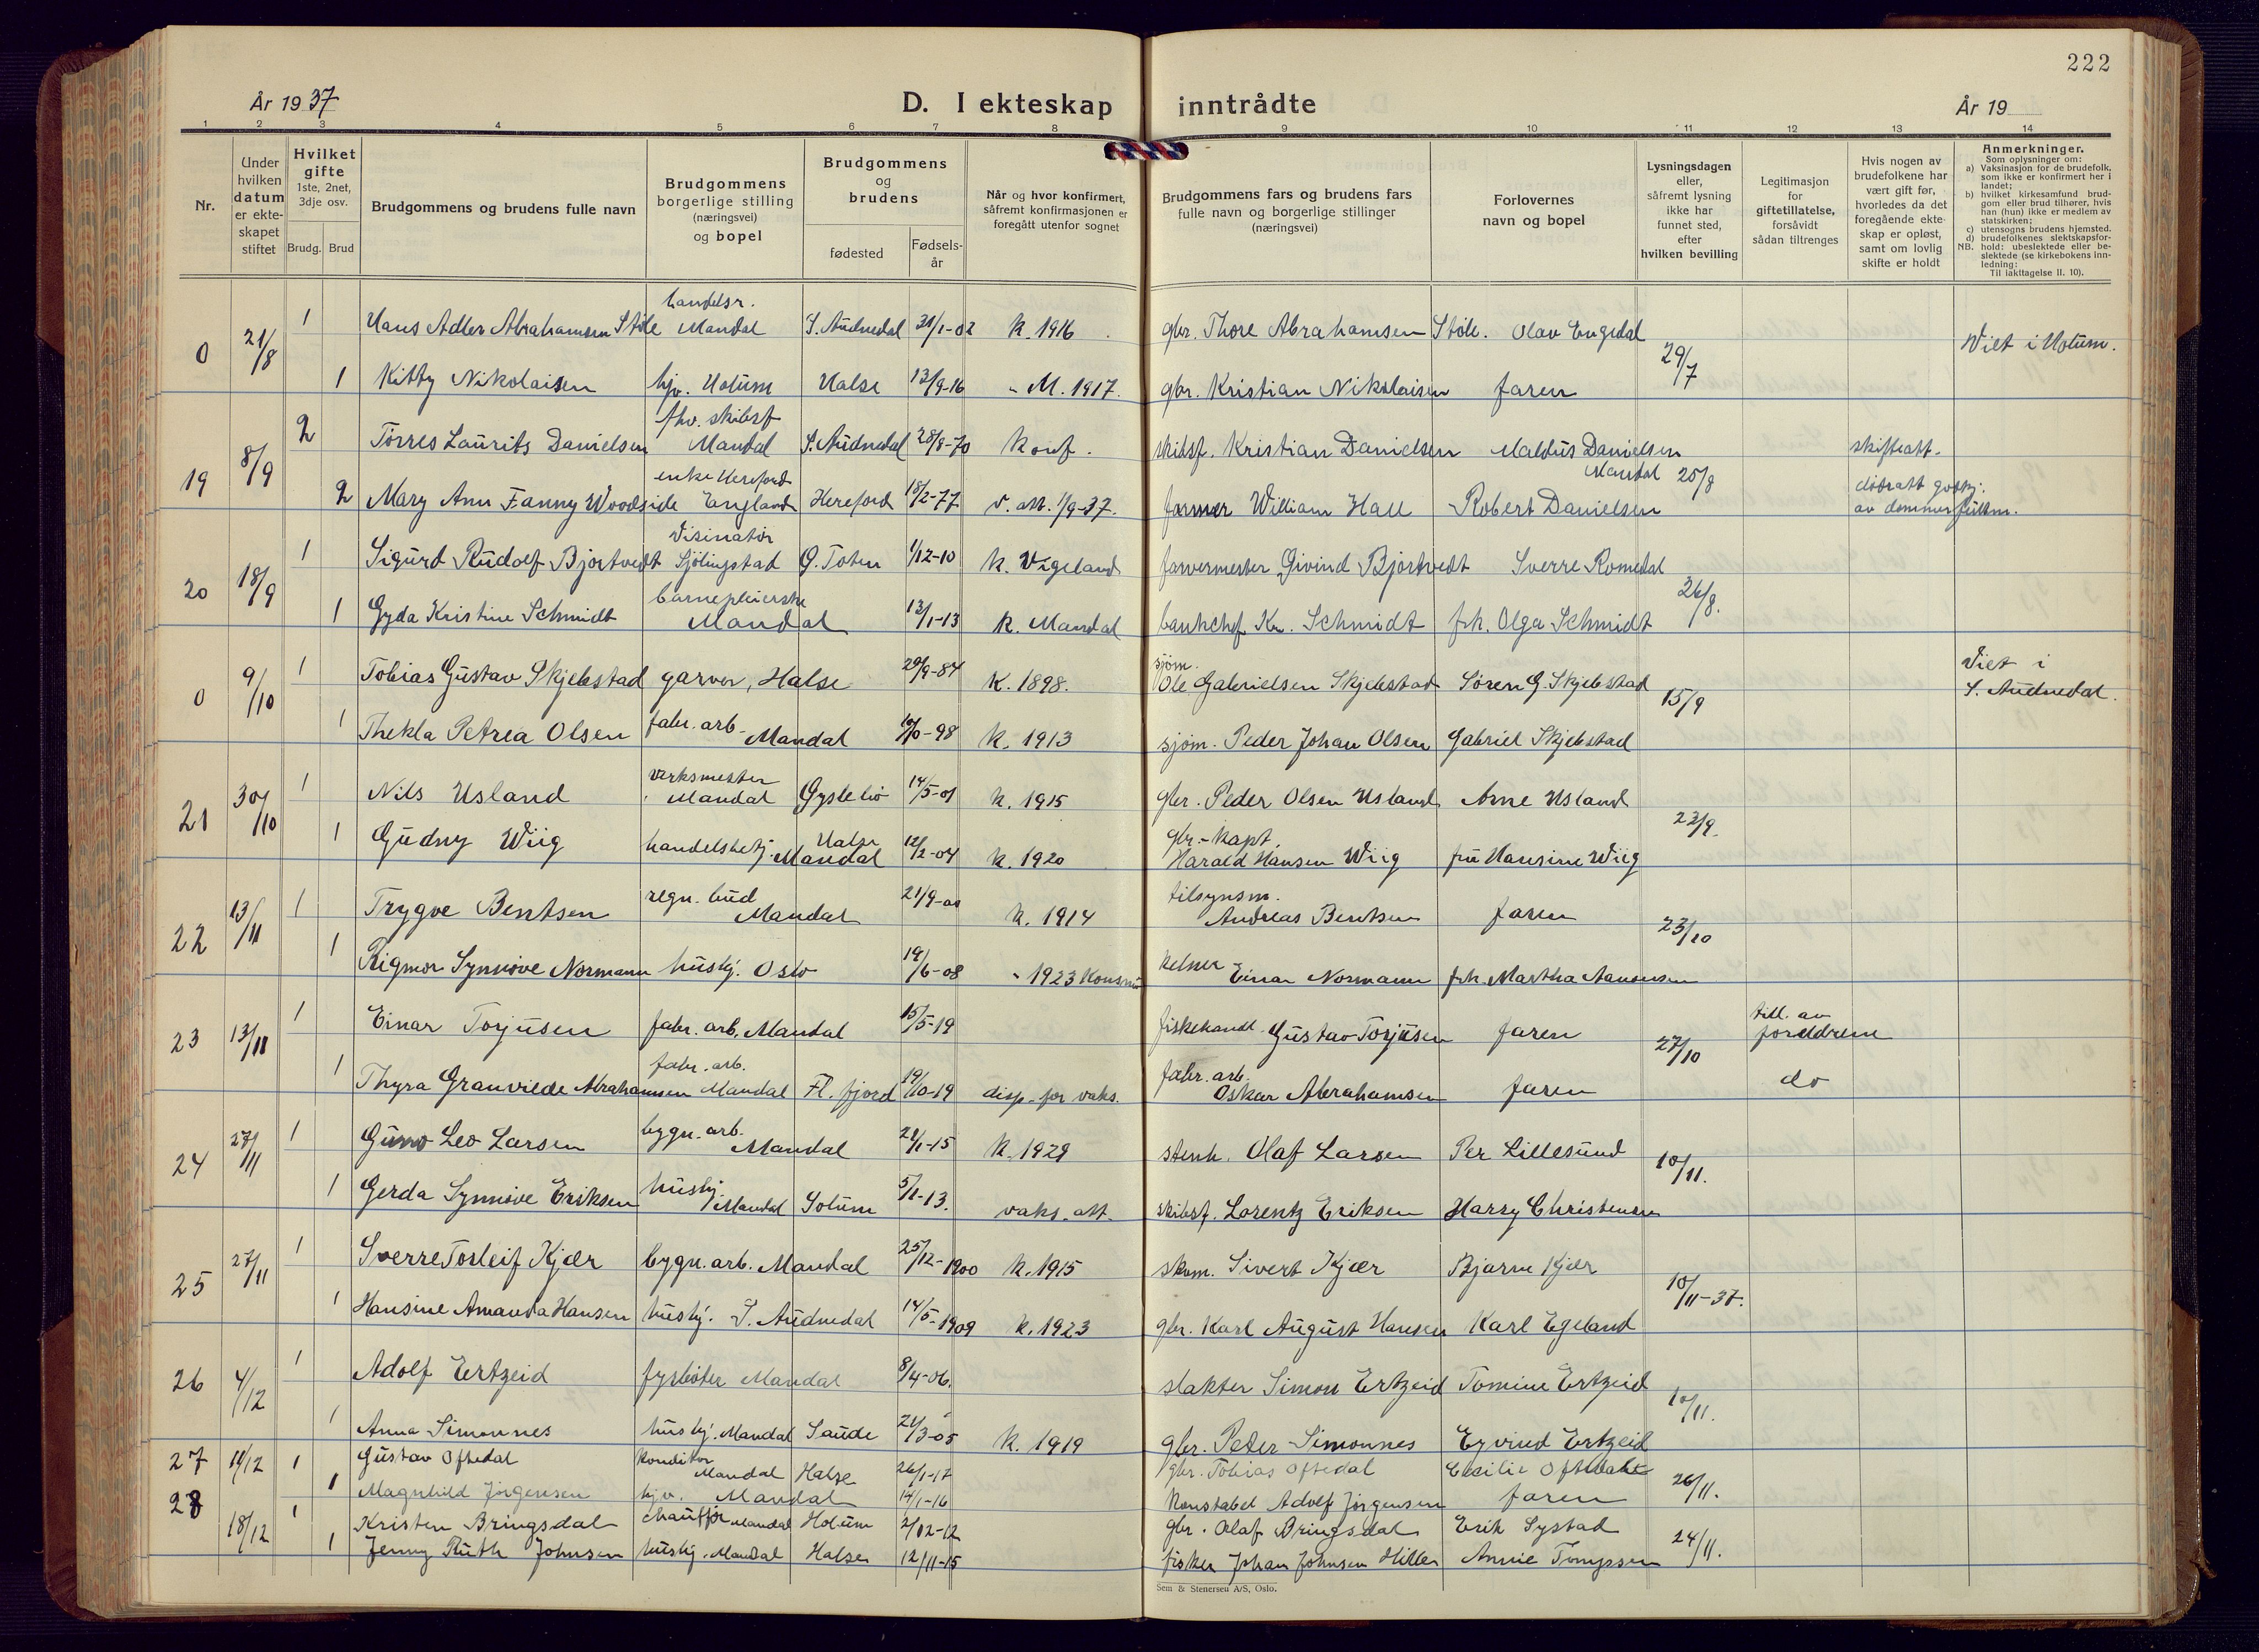 222
År 1937
D. I ekteskap inntrådte
År 19
1 2 3 4 5 6 7 8 9 10 11 12 13 14
Nr.
Under hvilken datum er ekteskapet stiftet
Hvilket gifte 1ste, 2net, 3dje osv.
Brudg. Brud
Brudgommens og brudens fulle navn
Brudgommens borgerlige stilling (næringsvei) og bopel
Brudgommens og brudens
fødested
Fødselsår
Når og hvor konfirmert, såfremt konfirmasjonen er foregått utenfor sognet
Brudgommens fars og brudens fars fulle navn og borgerlige stillinger (næringsvei)
Forlovernes navn og bopel
Lysningsdagen eller, såfremt lysning ikke har funnet sted, efter hvilken bevilling
Legitimasjon for giftetillatelse, forsåvidt sådan tiltrenges
Hvis nogen av brudefolkene har vært gift før, hvorledes da det foregående ekteskap er opløst, samt om lovlig skifte er holdt
Anmerkninger.
Som oplysninger om:
a) Vaksinasjon for de brudefolk, som ikke er konfirmert her i landet;
b) hvilket kirkesamfund brudgom eller brud tilhører, hvis han (hun) ikke er medlem av statskirken;
c) utensogns brudens hjemsted.
d) brudefolkenes slektskapsforhold: ubeslektede eller beslektede (se kirkebokens innledning:
NB.
Til iakttagelse II. 10).
0 21/8 1 Hans Adler Abrahamsen Støle handelsr. Mandal S. Audnedal 31/1-02 k. 1916 gbr. Thore Abrahamsen Støle. Olav Engedal 29/7 Viet i Holum.
1 Kitty Nikolaisen hjv. Holum Halse 13/9-16 - M. 1917. gbr. Kristian Nikolaisen faren
19 8/9 2 Tørres Laurits Danielsen fhv. skibsf. Mandal S. Audnedal 28/8-70 konf. skibsf. Kristian Danielsen Maldus Danielsen Mandal 25/8 skifteatt.
2 Mary Ann Fanny Woodside enke Hereford England Hereford 18/2-77 v. att. 1/9-37. farmer William Hall Robert Danielsen dødsatt godkj. av dommerfullm.
20 18/9 1 Sigurd Rudolf Bjørtvedt Sjølingstad Ø. Toten 1/12-10 k. Vigeland farvermester Eivind Bjørtvedt Sverre Romedal 26/8.
1 Gyda Kristine Schmidt barnepleierske Mandal 13/1-13 k. Mandal bankchef Kr. Schmidt frk. Olga Schmidt
0 9/10 1 Tobias Gustav Skjebstad garver, Halse 29/9-84 k. 1898. sjøm. Ole Gabrielsen Skjebstad Søren G. Skjebstad 15/9 Viet i S. Audnedal.
1 Thekla Petrea Olsen fabr. arb. Mandal 98 k. 1913 sjøm. Peder Johan Olsen Gabriel Skjebstad
21 30/10 1 Nils Usland verksmester Mandal Øyslebø 14/5-01 k. 1915 gbr. Peder Olsen Usland Arne Usland 23/9.
1 Gudny Wiig handelsbetj. Halse Mandal 12/2-04 k. 1920 gbr.-kapt. Harald Hansen Wiig fru Hansine Wiig
22 13/11 1 Trygve Bentsen regn. bud Mandal 21/9-00 k. 1914 tilsynsm. Andreas Bentsen faren 23/10
1 Rigmor Synnøve Normann hushj. Oslo 19/6-08 - 1923 kelner Einar Normann frk. Martha
23 13/11 1 Einar Torjusen fabr. arb. Mandal 15/5-19 fiskehandl. Gustav Torjusen faren 27/10 till. av foreldrene
1 Thyra Granvilde Abrahamsen fabr. arb. Mandal Fl. fjord 19/10-19 disp. for vaks. fabr. arb. Oskar Abrahamsen faren do
24 27/11 1 Leo Larsen bygn. arb. Mandal 21/1-15 k. 1929 stenh. Olaf Larsen Per Lillesund 10/11.
1 Gerda Synnøve Eriksen hushj. Mandal Solum 5/1-13. vaks. att. skibsf. Lorentz Eriksen Harry Christensen
25 27/11 1 Sverre Torleif Kjær bygn. arb. Mandal 25/12-1900 k. 1915 skom. Sivert Kjær Bjarne Kjær 10/11-37.
1 Hansine Amanda Hansen hushj. S. Audnedal 14/5-1909 k. 1923 gbr. Karl August Hansen Karl Egeland
26 4/12 1 Adolf Ertzeid fyrbøter Mandal 8/4-06. slakter Simon Ertzeid Tomine Ertzeid 10/11.
1 Anna Simonnes hushj. Mandal Saude 21/3-05 k. 1919 gbr. Peder Simonnes Eyvind Ertzeid
27 11/12 1 Gustav Oftedal konditor Mandal Halse 26/1-17 gbr. Tobias Oftedal Cecilie Oftedal 26/11.
1 Magnhild Jørgensen hjv. Mandal 14/1-16 konstabel Adolf Jørgensen faren
28 18/12 1 Kristen Bringsdal chauffør Mandal Holum 2/12-12 gbr. Olaf Bringsdal Erik Systad 24/11.
1 Jenny Ruth Johnsen hushj. Mandal Halse 12/11-15 fisker Johan Johnsen Hille Annie
Sem & Stenersen A/S, Oslo.